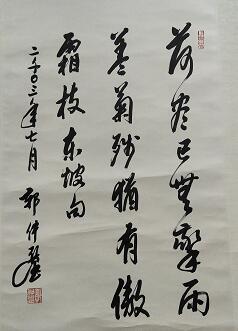 荷尽已無擎雨
盖菊残猶有傲
霜枝东坡句
二〇〇三年七月 郭仲選